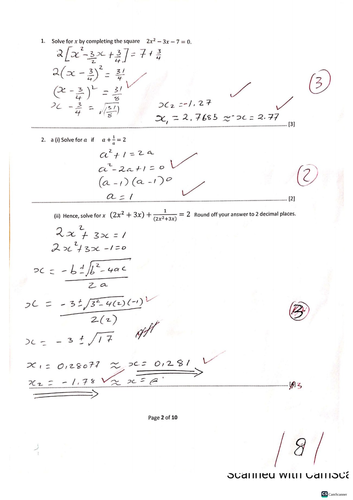 1. Solve for x by completing the square 2x² − 3x − 7 = 0.
2[x² − 3/2 x + 3/4] = 7 + 3/4
2(x − 3/4)² = 31/4
(x − 3/4)² = 31/8
x − 3/4 = √(31/8)
x₂ = −1.27
x₁ = 2.7685 ≈ x = 2.77
3
[3]
2. a (i) Solve for a if a + 1/a = 2
a² + 1 = 2a
a² − 2a + 1 = 0
(a − 1)(a − 1) 0
a = 1
2
[2]
(ii) Hence, solve for x (2x² + 3x) + 1/(2x²+3x) = 2 Round off your answer to 2 decimal places.
2x² + 3x = 1
2x² + 3x − 1 = 0
x = −b ± √b² − 4ac / 2a
x = −3 ± √3² − 4(2)(−1) / 2(2)
x = −3 ± √17
x₁ = 0,28077 ≈ x = 0,281
x₂ = −1.78 ≈ x =
3
Page 2 of 10
8
Scanned with CamSca
CS CamScanner